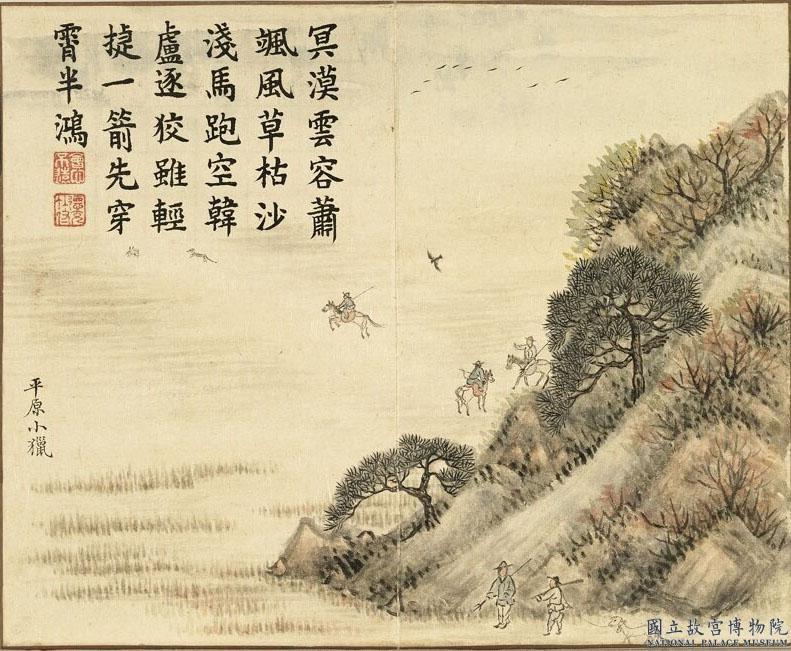 冥漠雲容蕭
颯風草枯沙
淺馬跑空韓
盧逐狡雖輕
捷一箭先穿
霄半鴻
平原小獵
國立故宮博物院
NATIONAL PALACE MUSEUM